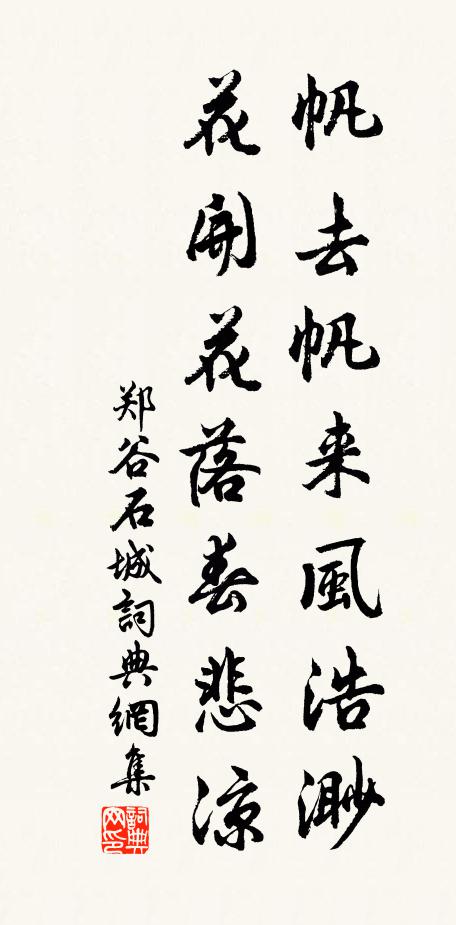 帆去帆来風浩渺
花開花落春悲涼
郑谷石城詞典網集
詞典网印